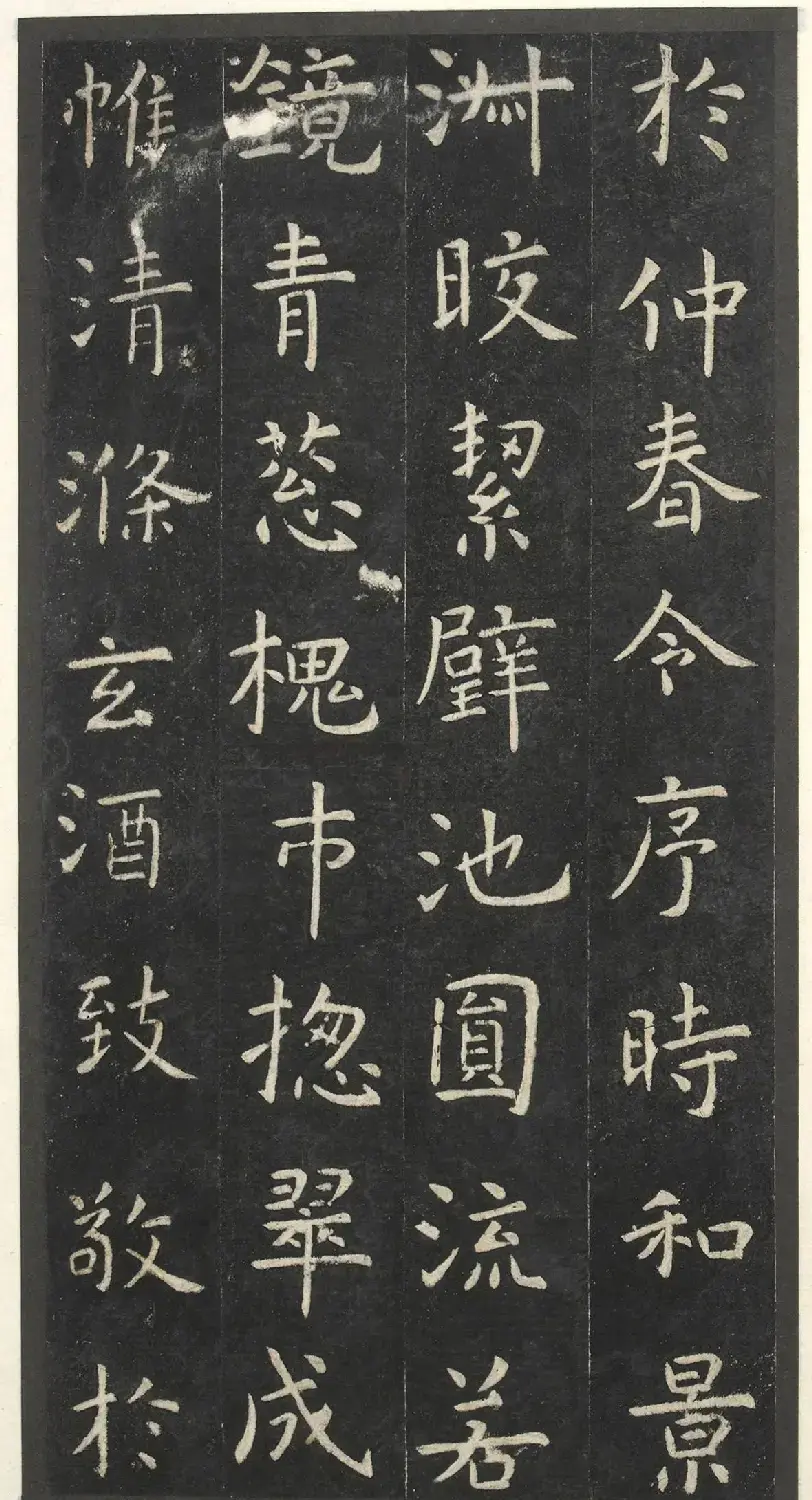 於仲春令序時和景
淑晈絜璧池圓流若
鏡青葱槐市揔翠成
帷清滌玄酒致敬於